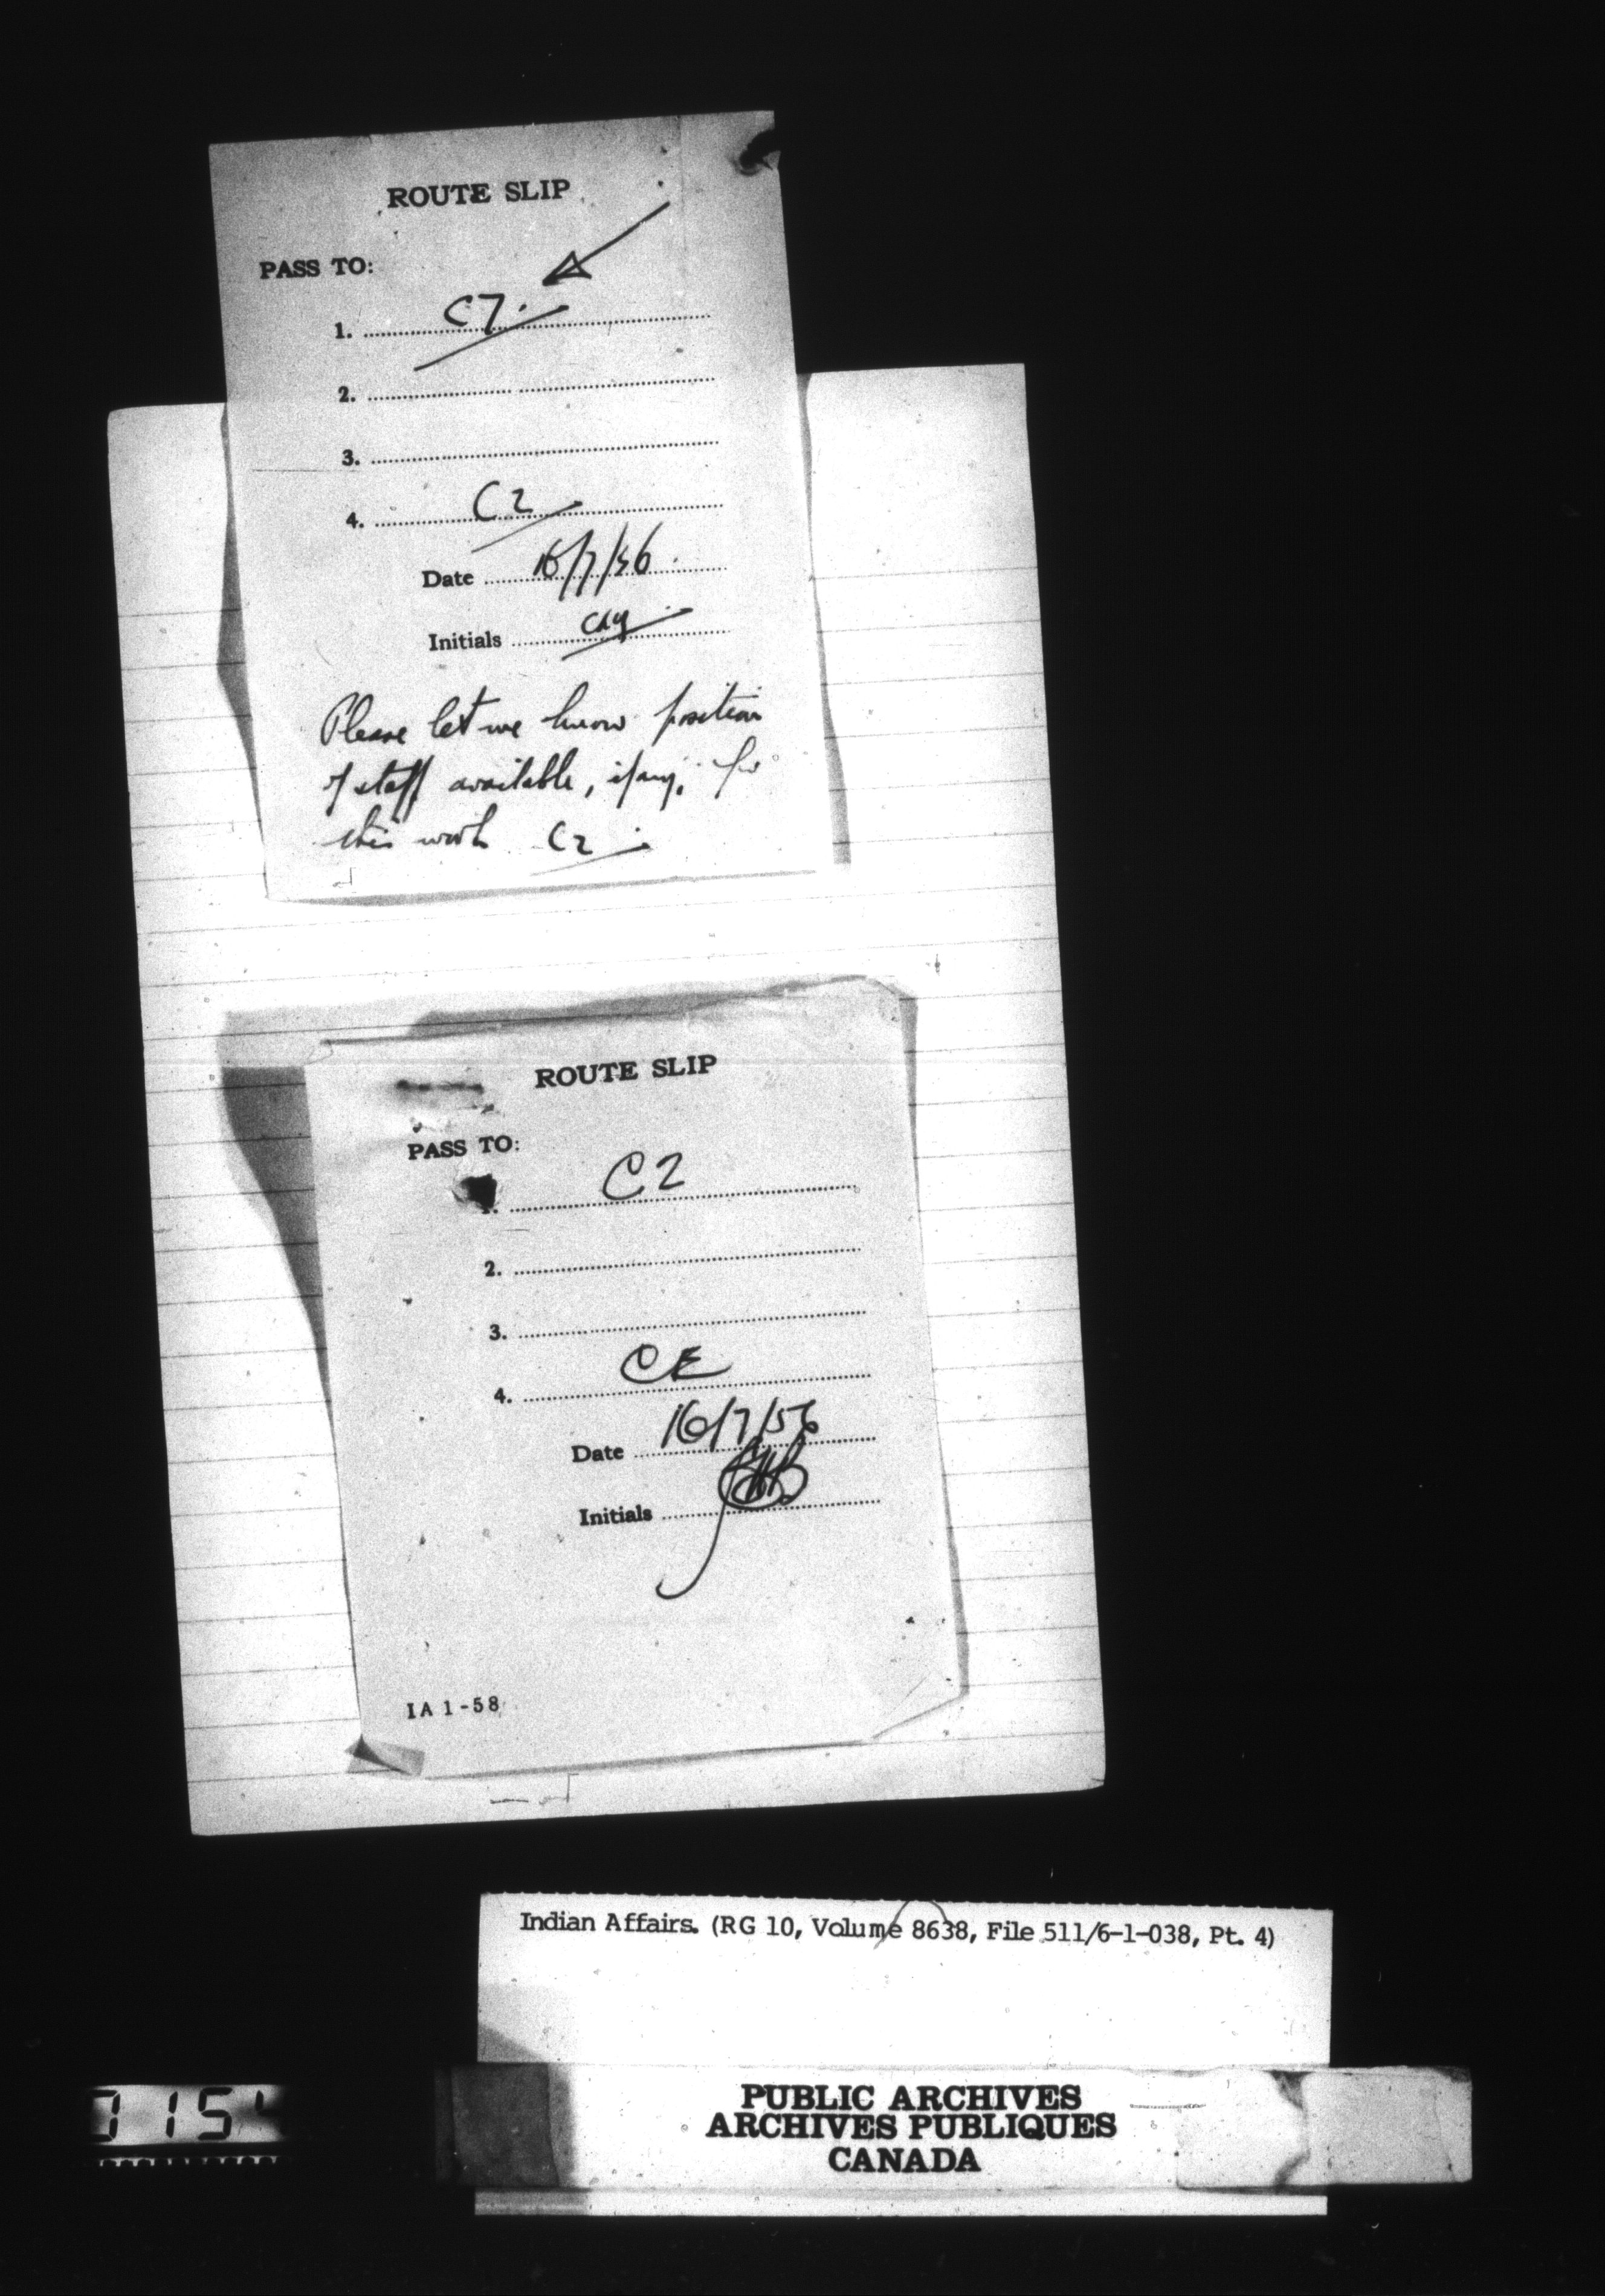 ROUTE SLIP
PASS TO:
1. C7.
2.
3.
4. C2
Date 16/7/56.
Initials
Please let me know position
of staff available, if any, for
this work C2
ROUTE SLIP
PASS TO:
1. C2
2.
3.
4. CE
Date 16/7/56
Initials
IA 1-58
Indian Affairs. (RG 10, Volume 8638, File 511/6-1-038, Pt. 4)
PUBLIC ARCHIVES
ARCHIVES PUBLIQUES
CANADA